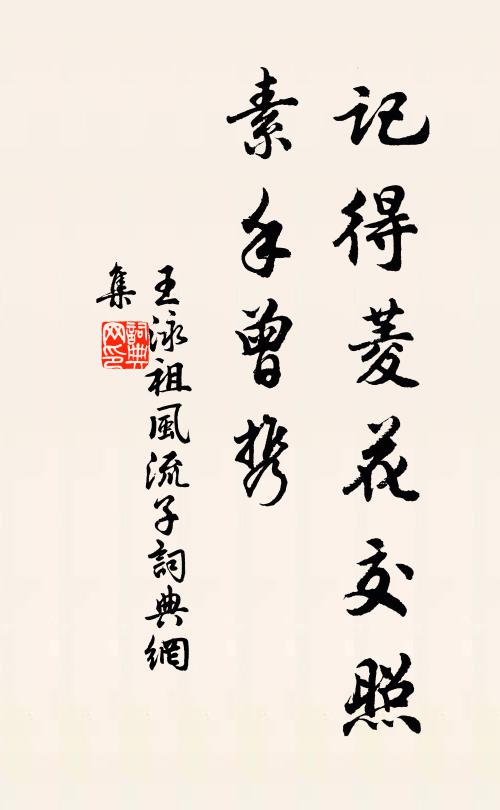 記得菱花交照
素手曾携
王泳祖風流子詞典網
集
詞典網印